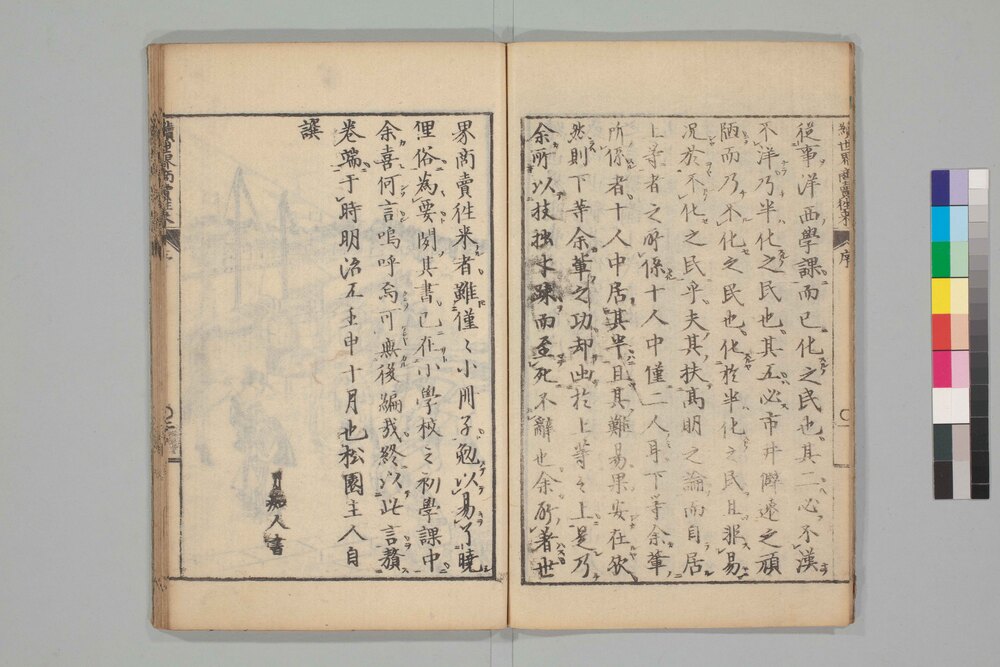 從事洋西學課而已化之民也其二必不漢
不洋乃半化之民也其五必市井僻遠之頑
陋而乃不化之民也化於半化之民且難易
況於不化之民乎夫其扶高明之論而自居
上等者之所係十人中僅二人耳下等余輩
所係者十人中居其半且其難易果安在欤
然則下等余輩之功却出於上等之上是乃
余所以技拙才疎而至死不辭也余所著世
界商賣徃来者雖僅〻小冊子勉以易了曉
俚俗為要閱其書已在小學校之初學課中
余喜何言嗚呼烏可無後編哉終以此言贅
巻端于時明治五壬申十月也松園主人自
譔
人書
續世界商賣徃来
序